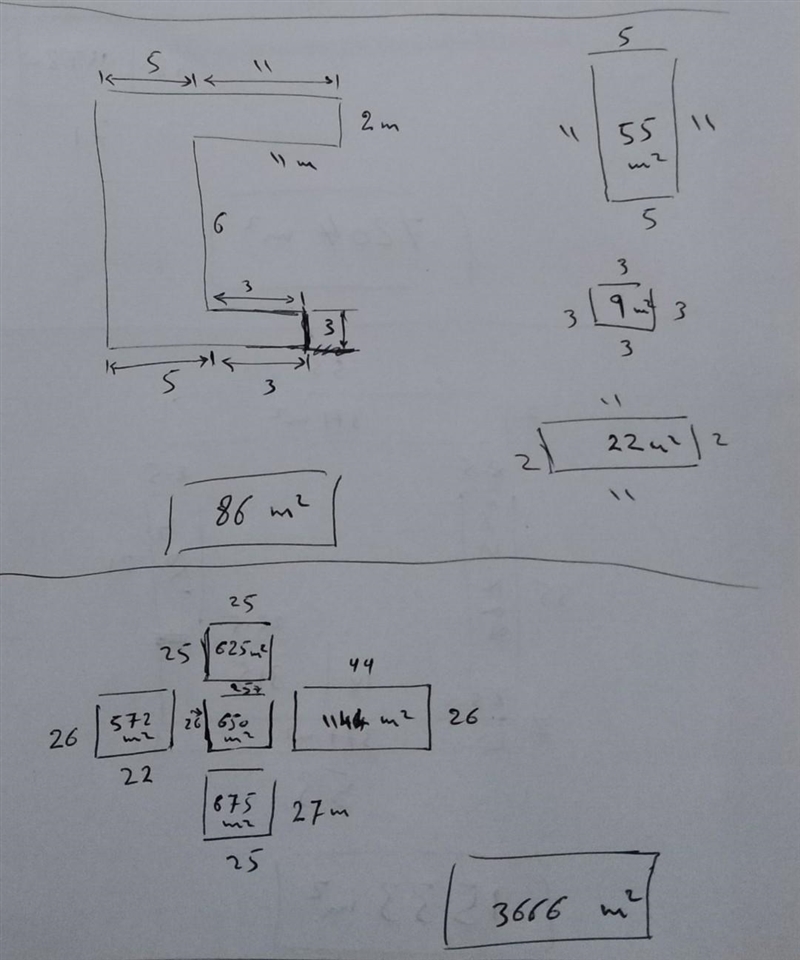 5 11
2 m
11 m
6
3
3
5 3
86 m²
5
11 55 m² 11
5
3
3 9 m² 3
3
11
2 22 m² 2
11
25
25 625 m²
44
26 572 m² 26 650 m² 1144 m² 26
22
675 m² 27 m
25
3666 m²